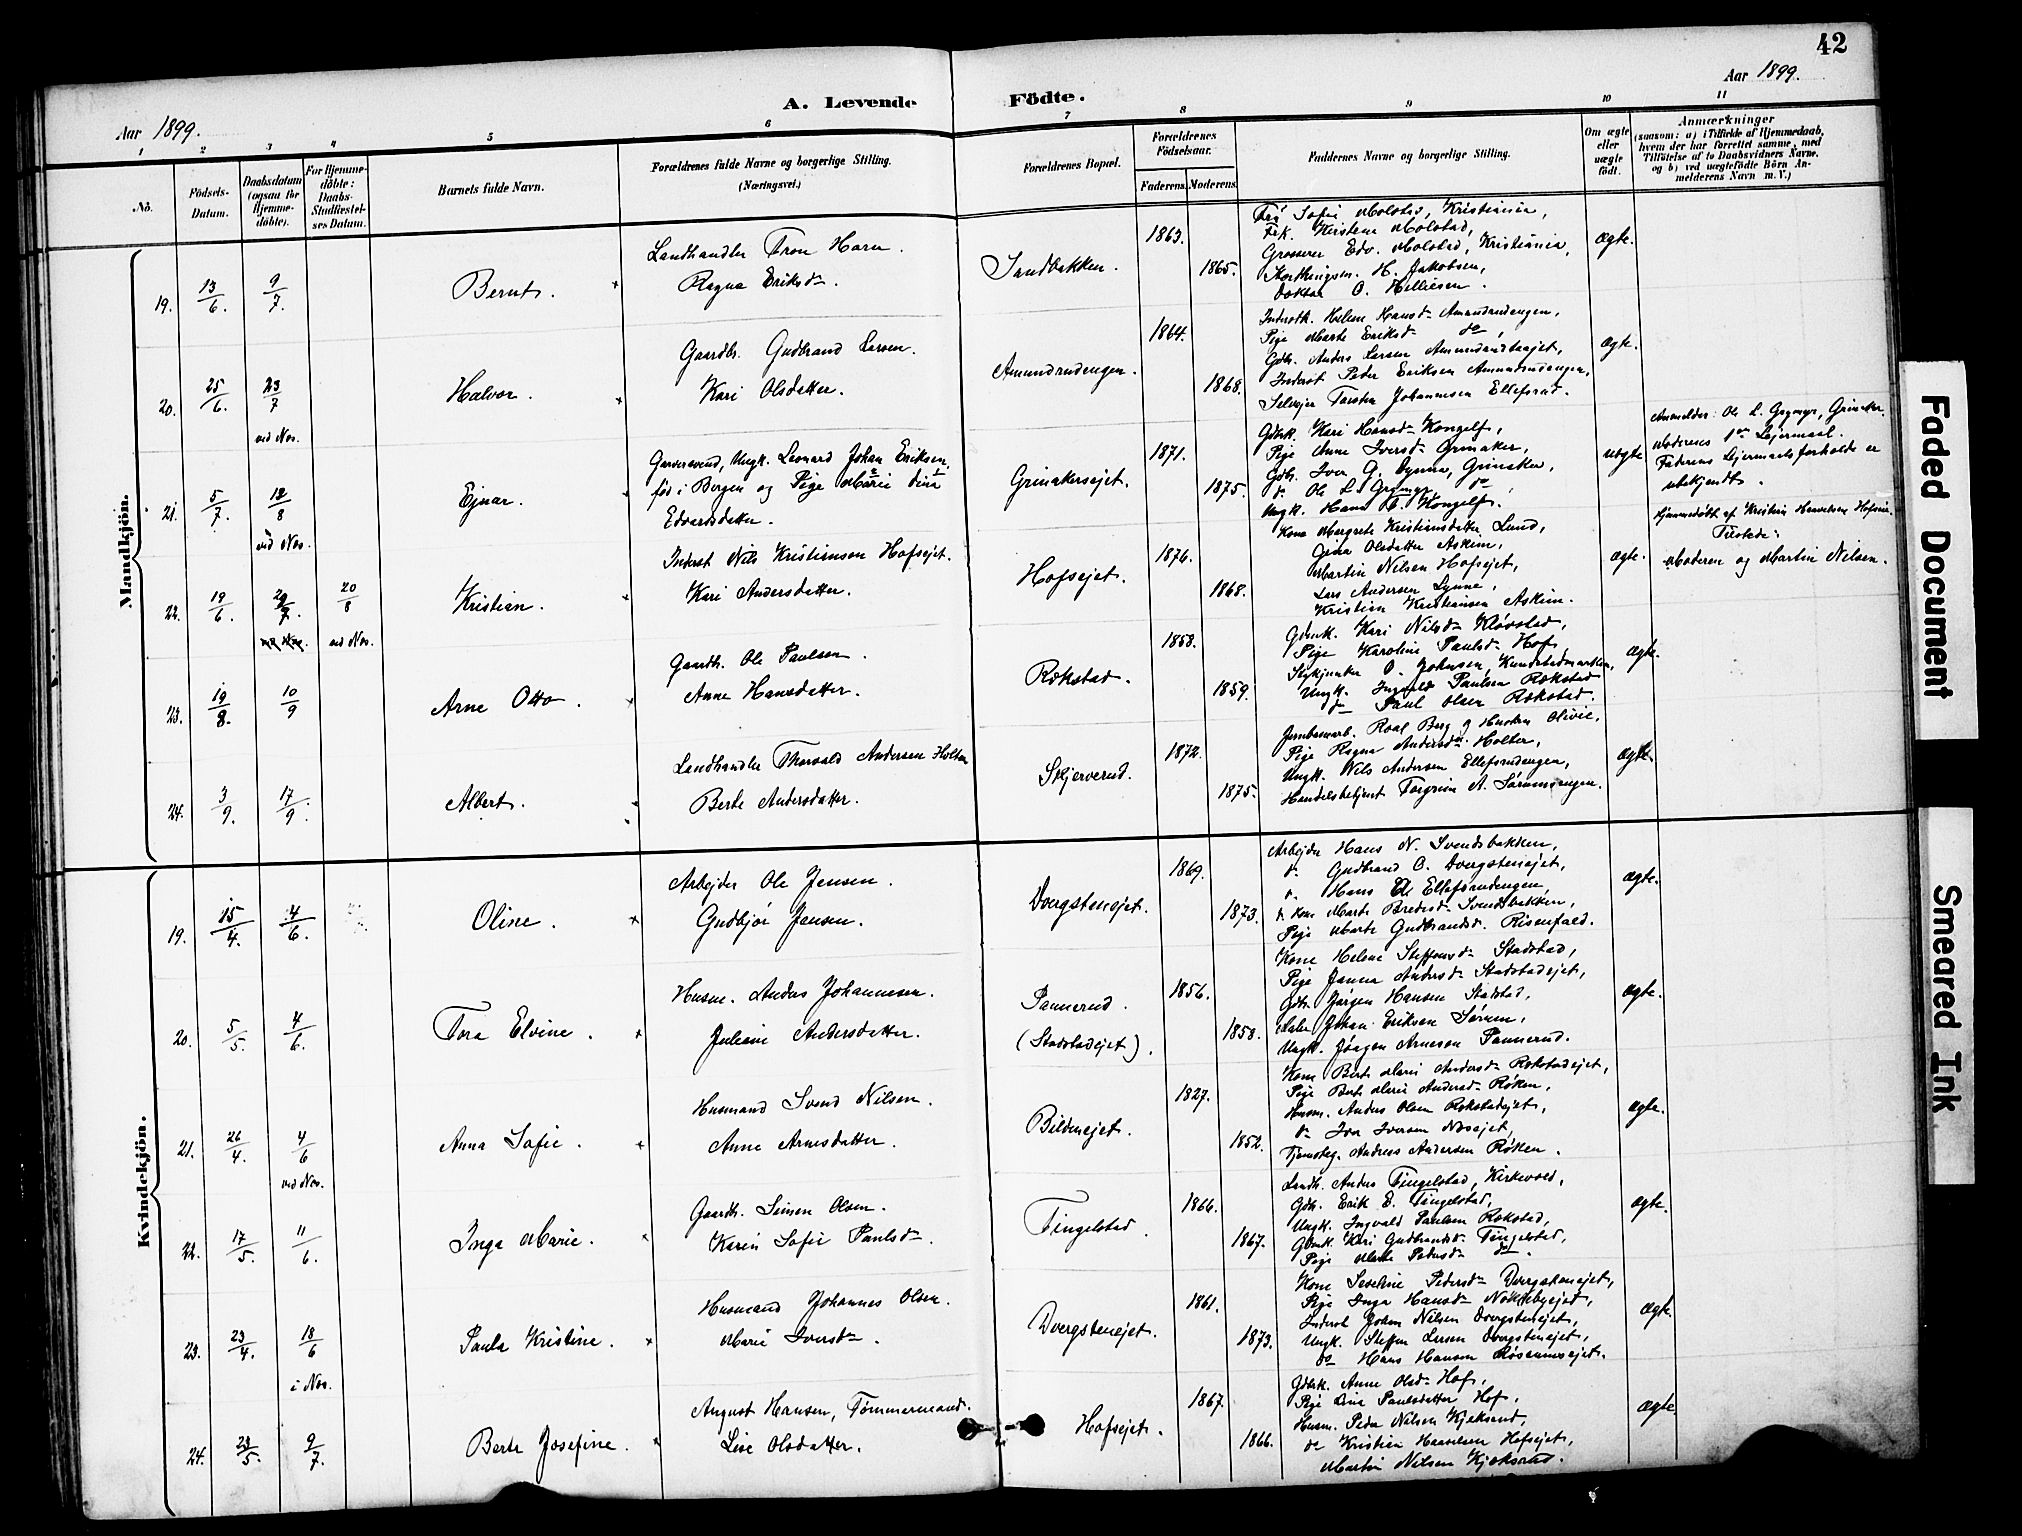 42
Aar 1899.
Aar 1899.
A. Levende
Födte.
1
2
3
4
5
6
7
8
9
10
11
No.
Födsels-
Datum.
Daabsdatum
(ogsaa for
Hjemme-
döbte).
For Hjemme-
döbte:
Daabs-
Stadfæstel-
ses Datum.
Barnets fulde Navn.
Forældrenes fulde Navne og borgerlige Stilling.
(Næringsvei.)
Forældrenes Bopæl.
Forældrenes
Födselsaar.
Faderens.
Moderens.
Faddernes Navne og borgerlig Stilling.
Om ægte
eller
uægte
födt.
Anmærkninger
(saasom: a) i Tilfælde af Hjemmedaab,
hvem der har forrettet samme, med
Tilföielse af to Daabsvidners Navne.
og b) ved uægtefödte Börn An-
melderens Navn m. V.)
Mandkjön.
19.
13/6.
9/7.
Bernt.
Landhandler Tron Horn.
Ragna Eriksd.
Sandbakken.
1863.
1865.
Sofie Molstad, Kristiania,
Frk. Kirstene Molstad,
Grosserer Edv. Molstad, Kristiania,
Storthingsm. H. Jakobsen,
Doktor O. Helliesen.
Ægte.
20.
25/6.
23/7
Halvor.
Gaardbr. Gudbrand Larsen.
Kari Olsdatter.
Amundrudengen.
1864.
1868.
Inderstk. Helene Hansd. Amundrudengen,
Pige Marte Eriksd. do,
Gdbr. Anders Larsen
Inderst Peder Eriksen Amundrudengen,
Selvejer Torsten Johannesen Ellefsrud.
Ægte.
21.
5/7.
ved Nos.
13/8
Ejnar.
Garversvend, Ungk. Leonard Johan Eriksen,
fød i Bergen og Pige Marie Lina
Edvardsdatter.
Grinakersejet.
1871.
1875.
Gdbrk. Kari Hansd. Kongelf,
Pige Anne Iversd. Grinaker,
Gdbr. Iver G. Lynne, Grinaker,
do Ole L. Grymyr, do,
Ungk. Hans O. Kongelf.
uægte
Anmelder: Ole L. Grymyr, Grinaker.
Moderens 1ste Lejermaal.
Faderens Lejermaalsforholde er
ubekjendt.
22.
19/6.
ved Nos.
29/7.
20/8
ved Nos.
Kristian.
Inderst Nils Kristiansen Hofsejet.
Kari Andersdatter.
Hofsejet.
1876.
1868.
Kone Margrete Kristiansdatter Lund,
Gina Olsdatter Askim,
Martin Nilsen Hofsejet,
Lars Andersen Lynne,
Kristian Kristiansen Askim.
Ægte.
Hjemmedøbt af Kristian
Tilstede:
Moderen og Martin Nilsen.
23.
19/8.
10/9
Arne Otto.
Gaardb. Ole Paulsen.
Anne Hansdatter.
Rækstad.
1853.
1859.
Gdbrk. Kari Nilsd. Kløvstad,
Pige Karoline Paulsd. Hof,
O. Johnsen,
Ungk. Ingvald Paulsen Rækstad
do Paul Olsen Rækstad.
Ægte.
24.
3/9.
17/9.
Albert.
Landhandler Thorvald Andersen Holter
Berte Andersdatter.
Skjerverud.
1872.
1875.
Roal Berg og Hustru Olivie,
Pige Ragna Andersd. Holter,
Ungk. Nils Andersen Ellefsrudengen,
Handelsbetjent Torgrim A.
Ægte.
Kvindekjön.
19.
15/4.
4/6.
Oline.
Arbejder Ole Jensen.
Gudbjør Jensen.
Dvergstenejet.
1869.
1873.
Arbejder Hans N. Svendsbakken,
do Gudbrand O. Dvergstenejet,
do Hans Ellefsrudengen,
Kone Marte Bredesd. Svendsbakken,
Pige Marte Gudbrandsd. Risenfald.
Ægte.
20.
5/5.
4/6.
Tora Elvine.
Husm. Anders Johannesen.
Juliane Andersdatter.
Pannerud.
(Stadstadejet).
1856.
1858.
Kone Helene Steffensd. Stadstad,
Pige Janna Andersd. Stadstadejet,
Gdbr. Jørgen Hansen Stadstad,
Johan Eriksen
Ungk. Jørgen Arnesen Pannerud.
Ægte.
21.
26/4.
4/6
ved Nos.
Anna Sofie.
Husmand Svend Nilsen.
Anne Arnesdatter.
Bildenejet.
1827.
1852.
Kone Berte Marie Andersd. Rækstadejet,
Pige Berte Marie Andersd. Røken,
Husm. Anders Olsen Rækstadejet,
do Iver Iversen
Tjenesteg. Andreas Andersen Røken.
Ægte.
22.
17/5.
11/6.
Inga Marie.
Gaardb. Simen Olsen.
Karen Sofie Paulsd.
Tingelstad.
1866.
1867.
Landh. Anders Tingelstad, Kirkevold,
Gdbr. Erik E. Tingelstad,
Ungk. Ingvald Paulsen Rækstad,
Gdbrk. Kari Gudbrandsd. Tingelstad,
Pige Marte Pedersd. do.
Ægte.
23.
23/4.
18/6
i Nos.
Paula Kristine.
Husmand Johannes Olsen.
Marie Iversd.
Dvergstenejet.
1861.
1873.
Kone Severine Pedersd. Dvergstenejet,
Pige Inga Hansd.
Inderst Johan Nilsen Dvergstenejet,
Ungk. Steffen Larsen Dvergstenejet,
do Hans Hansen
Ægte.
24.
28/5.
9/7.
Berte Josefine.
August Hansen, Tømmermand.
Lise Olsdatter.
Hofsejet.
1867.
1866.
Gdbrk. Anne Olsd. Hof,
Pige Lina Paulsdatter Hof,
Husm. Peder Nilsen Kjeksrud,
do Kristian Haavelsen Hofsejet,
Martin Nilsen Kjeksrud.
Ægte.
Faded Document
Smeared Ink